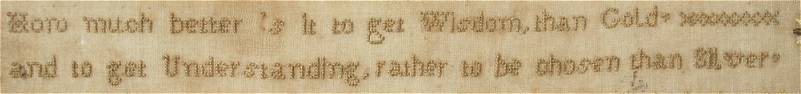 How much better is it to get Wisdom, than Gold
and to get Understanding, rather to be chosen than Silver